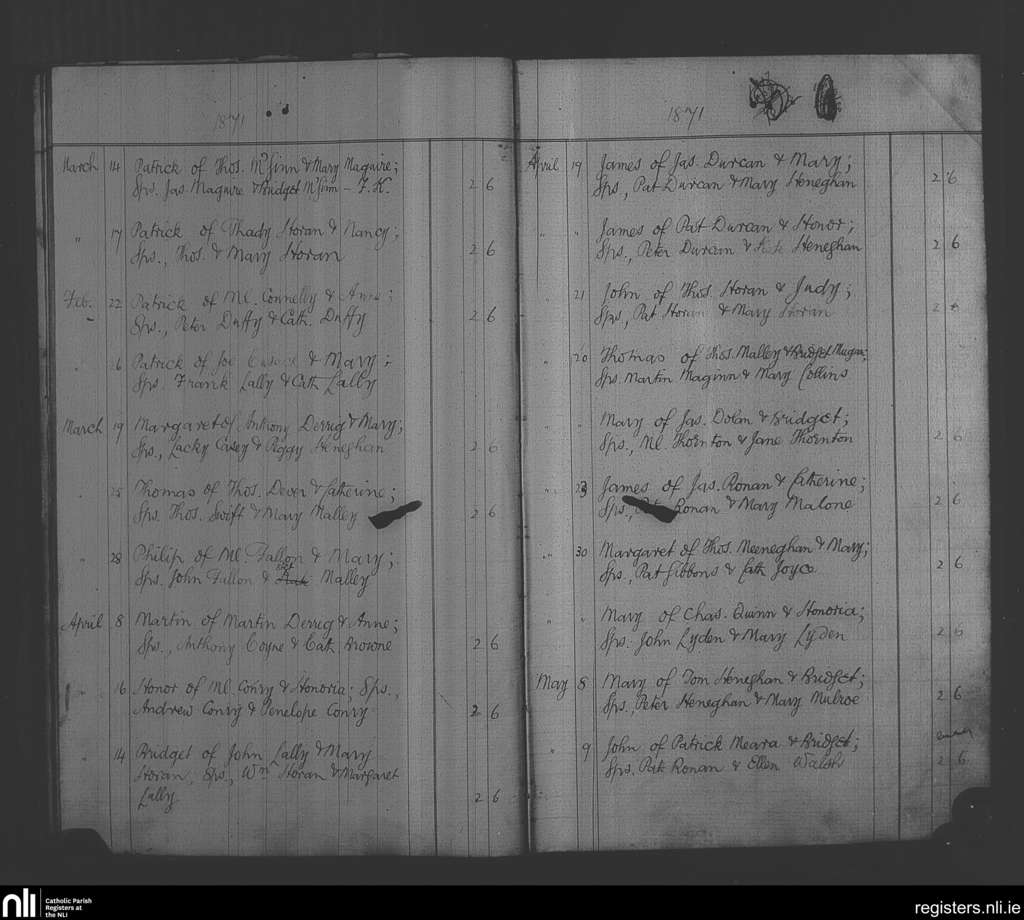 1871
March 14 Patrick of Thos. McGinn & Mary Maguire;
Sps. Jas. Maguire & Bridget McGinn - F. K. 2 6
" 17 Patrick of Thady Horan & Nancy;
Sps., Thos. & Mary Horan 2 6
Feb. 22 Patrick of Ml. Connelly & Anne;
Sps., Peter Duffy & Cath. Duffy 2 6
" 16 Patrick of Joe & Mary;
Sps. Frank Lally & Cath Lally
March 19 Margaret of Anthony Derrig & Mary;
Sps., Lacky Casey & Peggy Heneghan 2 6
" 25 Thomas of Thos. Dever & Catherine;
Sps. Thos. Swift & Mary Malley 2 6
" 28 Philip of Ml. Fallon & Mary;
Sps. John Fallon & Malley
April 8 Martin of Martin Derrig & Anne;
Sps., Anthony Coyne & Cath Browne 2 6
" 16 Honor of Ml. Conry & Honoria; Sps.,
Andrew Conry & Penelope Conry 2 6
" 14 Bridget of John Lally & Mary
Horan; Sps., Wm Horan & Margaret
Lally 2 6
1871
April 19 James of Jas. Durcan & Mary;
Sps., Pat Durcan & Mary Heneghan 2 6
" " James of Pat Durcan & Honor;
Sps., Peter Durcan & Kate Heneghan 2 6
" 21 John of Thos. Horan & Judy;
Sps., Pat Horan & Mary Horan 2
" 20 Thomas of Thos. Malley & Bridget
Sps. Martin Maginn & Mary Collins
" " Mary of Jas. Dolan & Bridget;
Sps., Ml. Thornton & Jane Thornton 2 6
" 23 James of Jas. Ronan & Catherine;
Sps., Ronan & Mary Malone 2 6
" 30 Margaret of Thos. Meeneghan & Mary;
Sps., Pat Gibbons & Cath Joyce 2 6
" " Mary of Chas. Quinn & Honoria;
Sps. John Lyden & Mary Lyden 2 6
May 8 Mary of Tom Heneghan & Bridget;
Sps., Peter Heneghan & Mary Mulroe 2 6
" 9 John of Patrick Meara & Bridget;
Sps. Pat Ronan & Ellen Walsh 2 6
nli Catholic Parish
Registers at
the NLI
registers.nli.ie